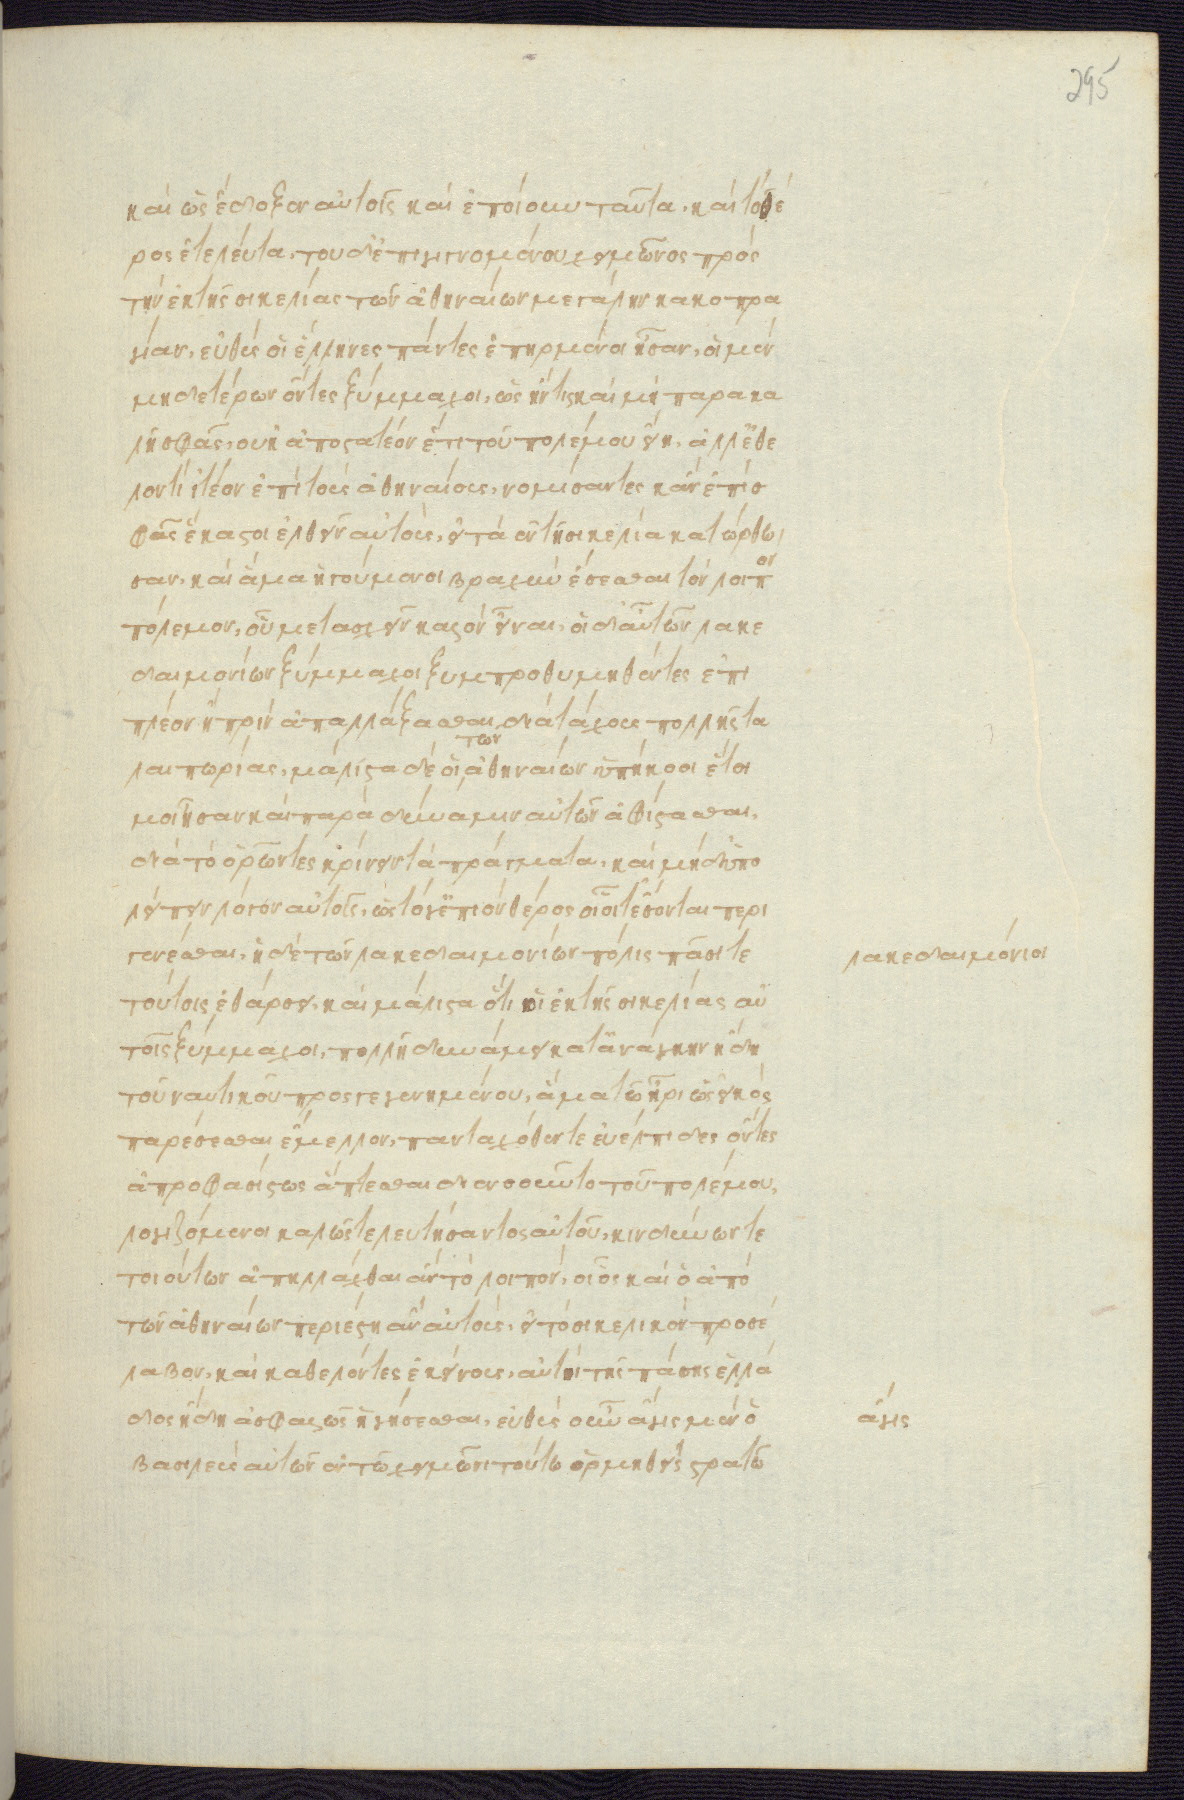 295
καὶ ὡς ἔδοξεν αὐτοῖς καὶ ἐποίουν ταῦτα. καὶ τὸ θέ
ρος ἐτελεύτα. του δ' ἐπιγιγνομένου χειμῶνος πρὸς
τὴν ἐκ τῆς σικελίας τῶν ἀθηναίων μεγάλην κακοπρα
γίαν, εὐθὺς οἱ ἕλληνες πάντες ἐπηρμένοι ἦσαν, οἱ μὲν
μηδετέρων ὄντες ξύμμαχοι, ὡς ἤν τις καὶ μὴ παρακα
λῇ σφᾶς, ουκ ἀποστατέον ἔτι τοῦ πολέμου εἴη, ἀλλ' ἐθε
λοντὶ ἰτέον ἐπὶ τοὺς ἀθηναίους, νομίσαντες κἂν ἐπὶ σ
φᾶς ἕκαστοι ἐλθεῖν αὐτοὺς, εἰ τὰ ἐν τῇ σικελία κατώρθω
σαν, καὶ ἅμα ἡγούμενοι βραχὺν ἔσεσθαι τὸν λοιπον
πόλεμον, οὗ μετασχεῖν καλὸν εἶναι, οἱ δ' αὖ τῶν λακε
δαιμονίων ξύμμαχοι ξυμπροθυμηθέντες ἐπὶ
πλέον ἢ πρὶν ἀπαλλάξασθαι διὰ τάχους πολλῆς τα
λαιπωρίας, μάλιστα δὲ οἱ των ἀθηναίων ὑπήκοοι ἕτοι
μοι ἦσαν καὶ παρὰ δύναμιν αὐτῶν ἀφίστασθαι,
διὰ τὸ ὀργῶντες κρίνειν τὰ πράγματα, καὶ μηδ' ὑπο
λείπειν λόγον αὐτοῖς, ὡς τό γ' ἐπιὸν θέρος οἷοί τε ἔσονται περι
γενέσθαι, ἡ δὲ τῶν λακεδαιμονίων πόλις πᾶσί τε
λακεδαιμόνιοι
τούτοις ἐθάρσει, καὶ μάλιστα ὅτι οἱ ἐκ τῆς σικελίας αὐ
τοῖς ξύμμαχοι, πολλῇ δυνάμει κατ' ἀνάγκην ἤδη
τοῦ ναυτικοῦ προσγεγενημένου, ἅμα τῶ ἦρι ὡς εἰκὸς
παρέσεσθαι ἔμελλον, πανταχόθεν τε εὐέλπιδες ὄντες
ἀπροφασίστως ἅπτεσθαι διενοοῦντο τοῦ πολέμου,
λογιζόμενοι καλῶς τελευτήσαντος αὐτοῦ, κινδύνων τε
τοιούτων ἀπηλλάχθαι ἂν τὸ λοιπὸν, οἷος καὶ ὁ ἀπὸ
τῶν ἀθηναίων περιέστη ἂν αὐτοὺς, εἰ τὸ σικελικὸν προσέ
λαβον, καὶ καθελόντες ἐκείνους, αὐτοὶ τῆς πάσης ἑλλά
δος ἤδη ἀσφαλῶς ἡγήσεσθαι, εὐθὺς οὖν ἄγις μὲν ὁ
ἄγις
βασιλεὺς αὐτῶν ἐν τῶ χειμῶνι τούτω ὁρμηθεὶς στρατῶ